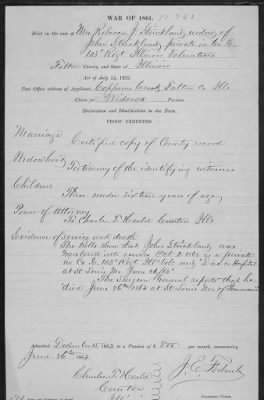 WAR OF 1861.
Brief in the case of Mrs Rebecca J. Strickland, widow of
John Strickland, private in Co. E.
103" Regt Illinois Volunteers
Fulton County, and State of Illinois
Act of July 14, 1862.
Post Office address of Applicant: Copperas Creek Fulton Co Ills
Claim for Widows Pension.
Declaration and Identification in due Form.
PROOF EXHIBITED
Marriage
Certified copy of County record
Widowhood
Testimony of the identifying witnesses
Children
Three under sixteen years of age
Power of Attorney
To Charles T. Heald Canton Ills
Evidence of service and death
The Rolls show that John Strickland was
mustered into service Oct 2 1862 as a private
in Co. E. 103" Regt Ills Vols and Died in Hospital
at St Louis Mo June 26/63"
The Surgeon General reports that he
died June 26th 1863 at St Louis Mo of Pneumonia
Admitted December 15, 1863, to a Pension of $8.00 per month, commencing
June 26th 1863.
Charles T. Heald
Canton
Illinois